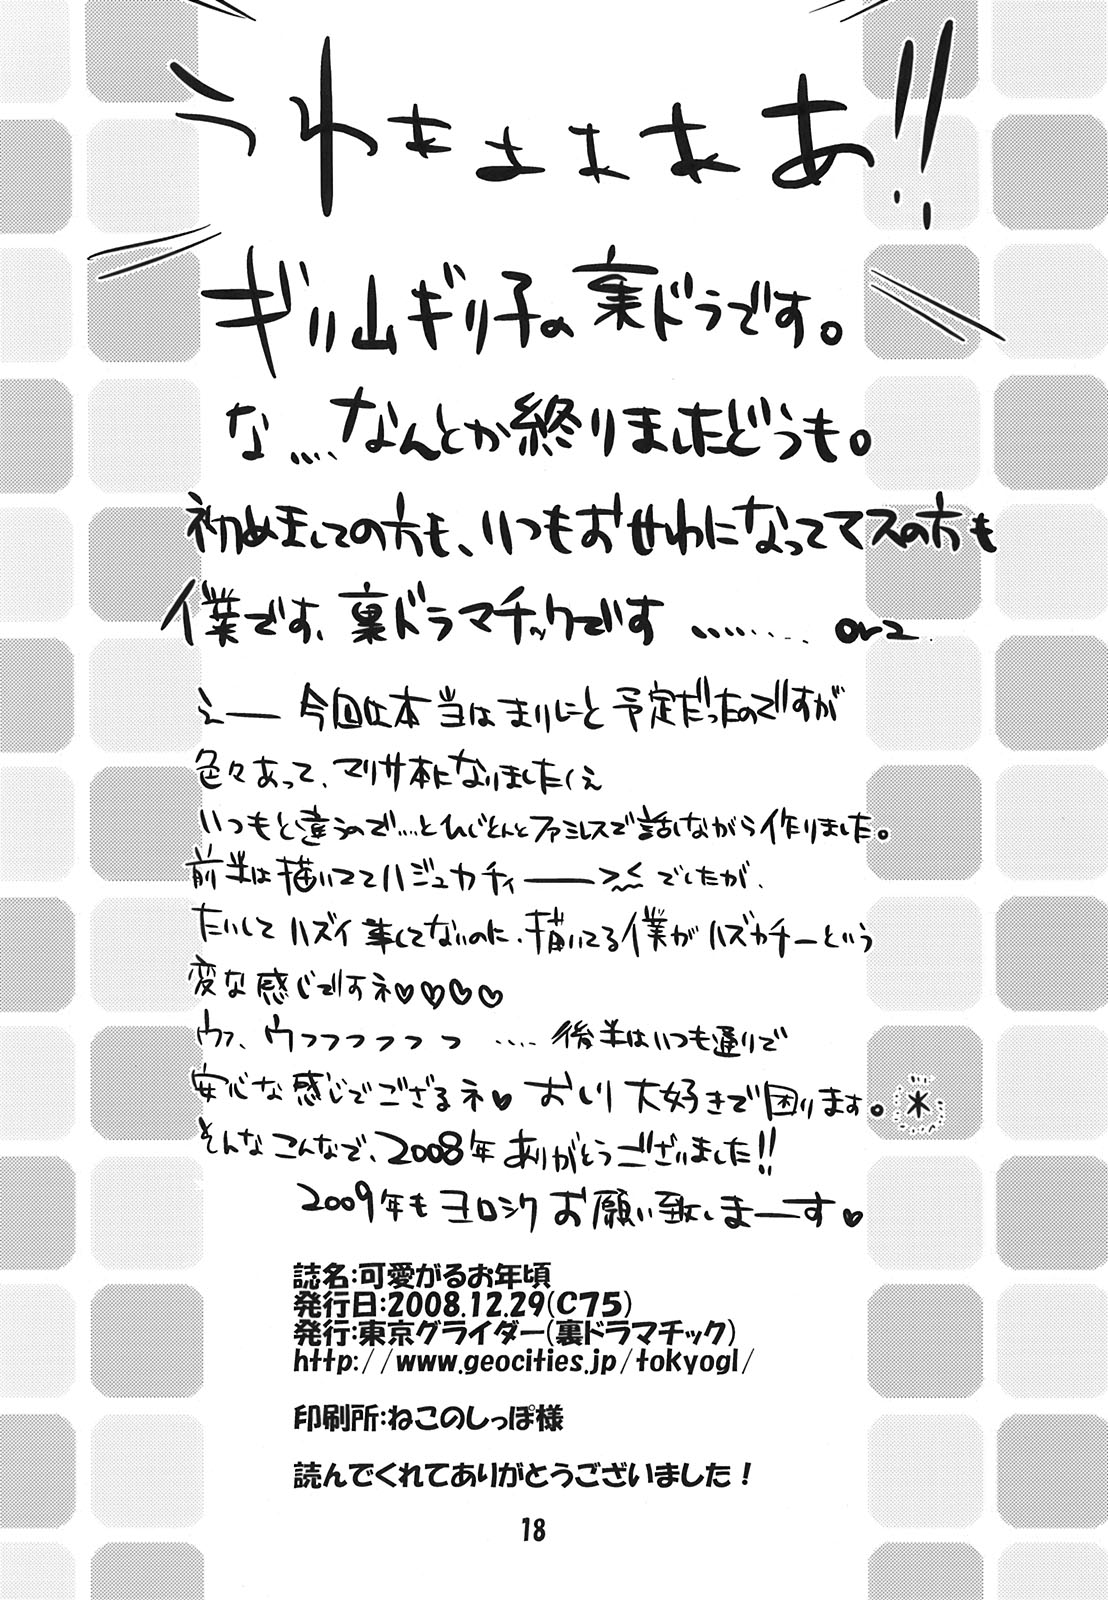 うわぁぁぁぁあ!!
ギリ山ギリ子の裏ドラです。
な….なんとか終りましたどうも。
初めましての方も、いつもおせわになってマスの方も
僕です、裏ドラマチックです ……… orz
えー 今回は本当はまりにと予定だったのですが
色々あって、マリサ本になりましたくぇ
いつもと違うので….とひじとんとファミレスで話しながら作りました。
前半は描いててハジュカチィー>﹏<でしたが、
たいしてハズイ事してないのに、描いてる僕がハズカチーという
変な感じですネ♡♡♡♡
ウフ、ウフフフフフフ …. 後半はいつも通りで
安心な感じでござるネ♥ おしり大好きで困ります。*
そんなこんなで、2008年ありがとうございました!!
2009年もヨロシクお願い致しまーす♥
誌名:可愛がるお年頃
発行日:2008.12.29(C75)
発行:東京グライダー(裏ドラマチック)
http://www.geocities.jp/tokyogl/
印刷所:ねこのしっぽ様
読んでくれてありがとうございました!
18